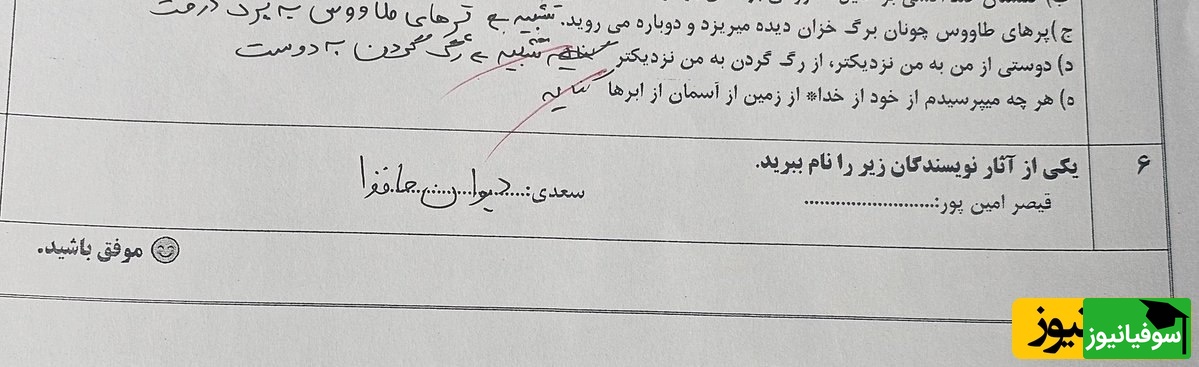 ج)پرهای طاووس چونان برگ خزان دیده میریزد و دوباره می روید. تشبیه ← پرهای طاووس به برگ درخت
د) دوستی از من به من نزدیکتر، از رگ گردن به من نزدیکتر تشبیه ← رگ گردن به دوست
ه) هر چه میپرسیدم از خود از خدا* از زمین از آسمان از ابرها کنایه
۶ یکی از آثار نویسندگان زیر را نام ببرید.
قیصر امین پور:.......................... سعدی:دیوان حافظ
موفق باشید.
سوفیانیوز نیوز